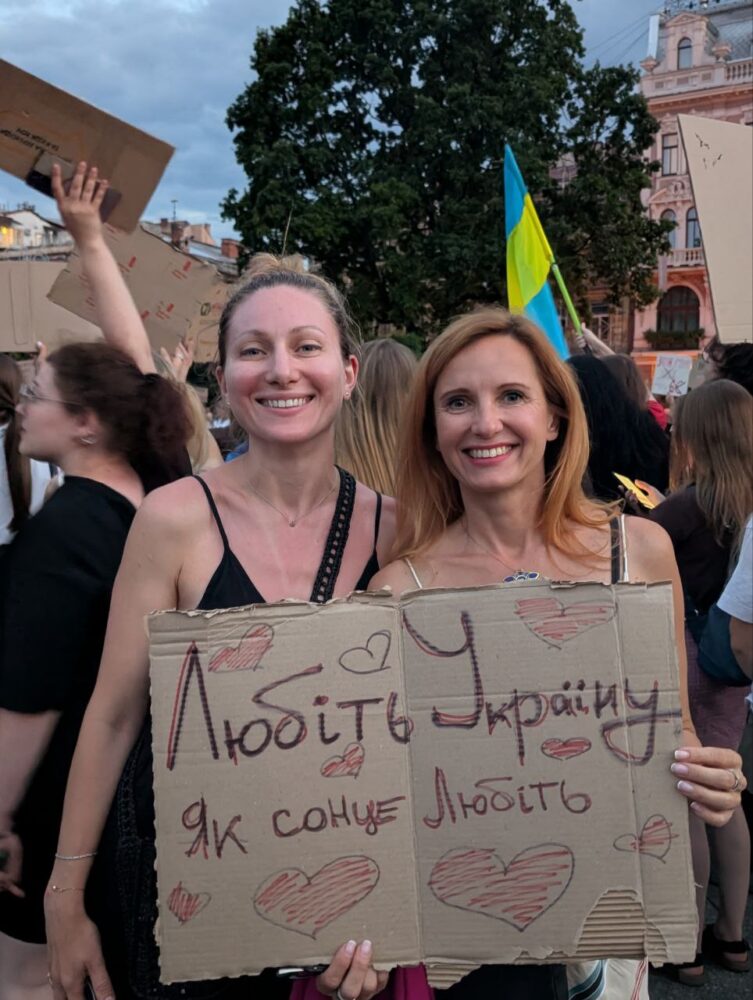 Любіть Україну
як сонце любіть